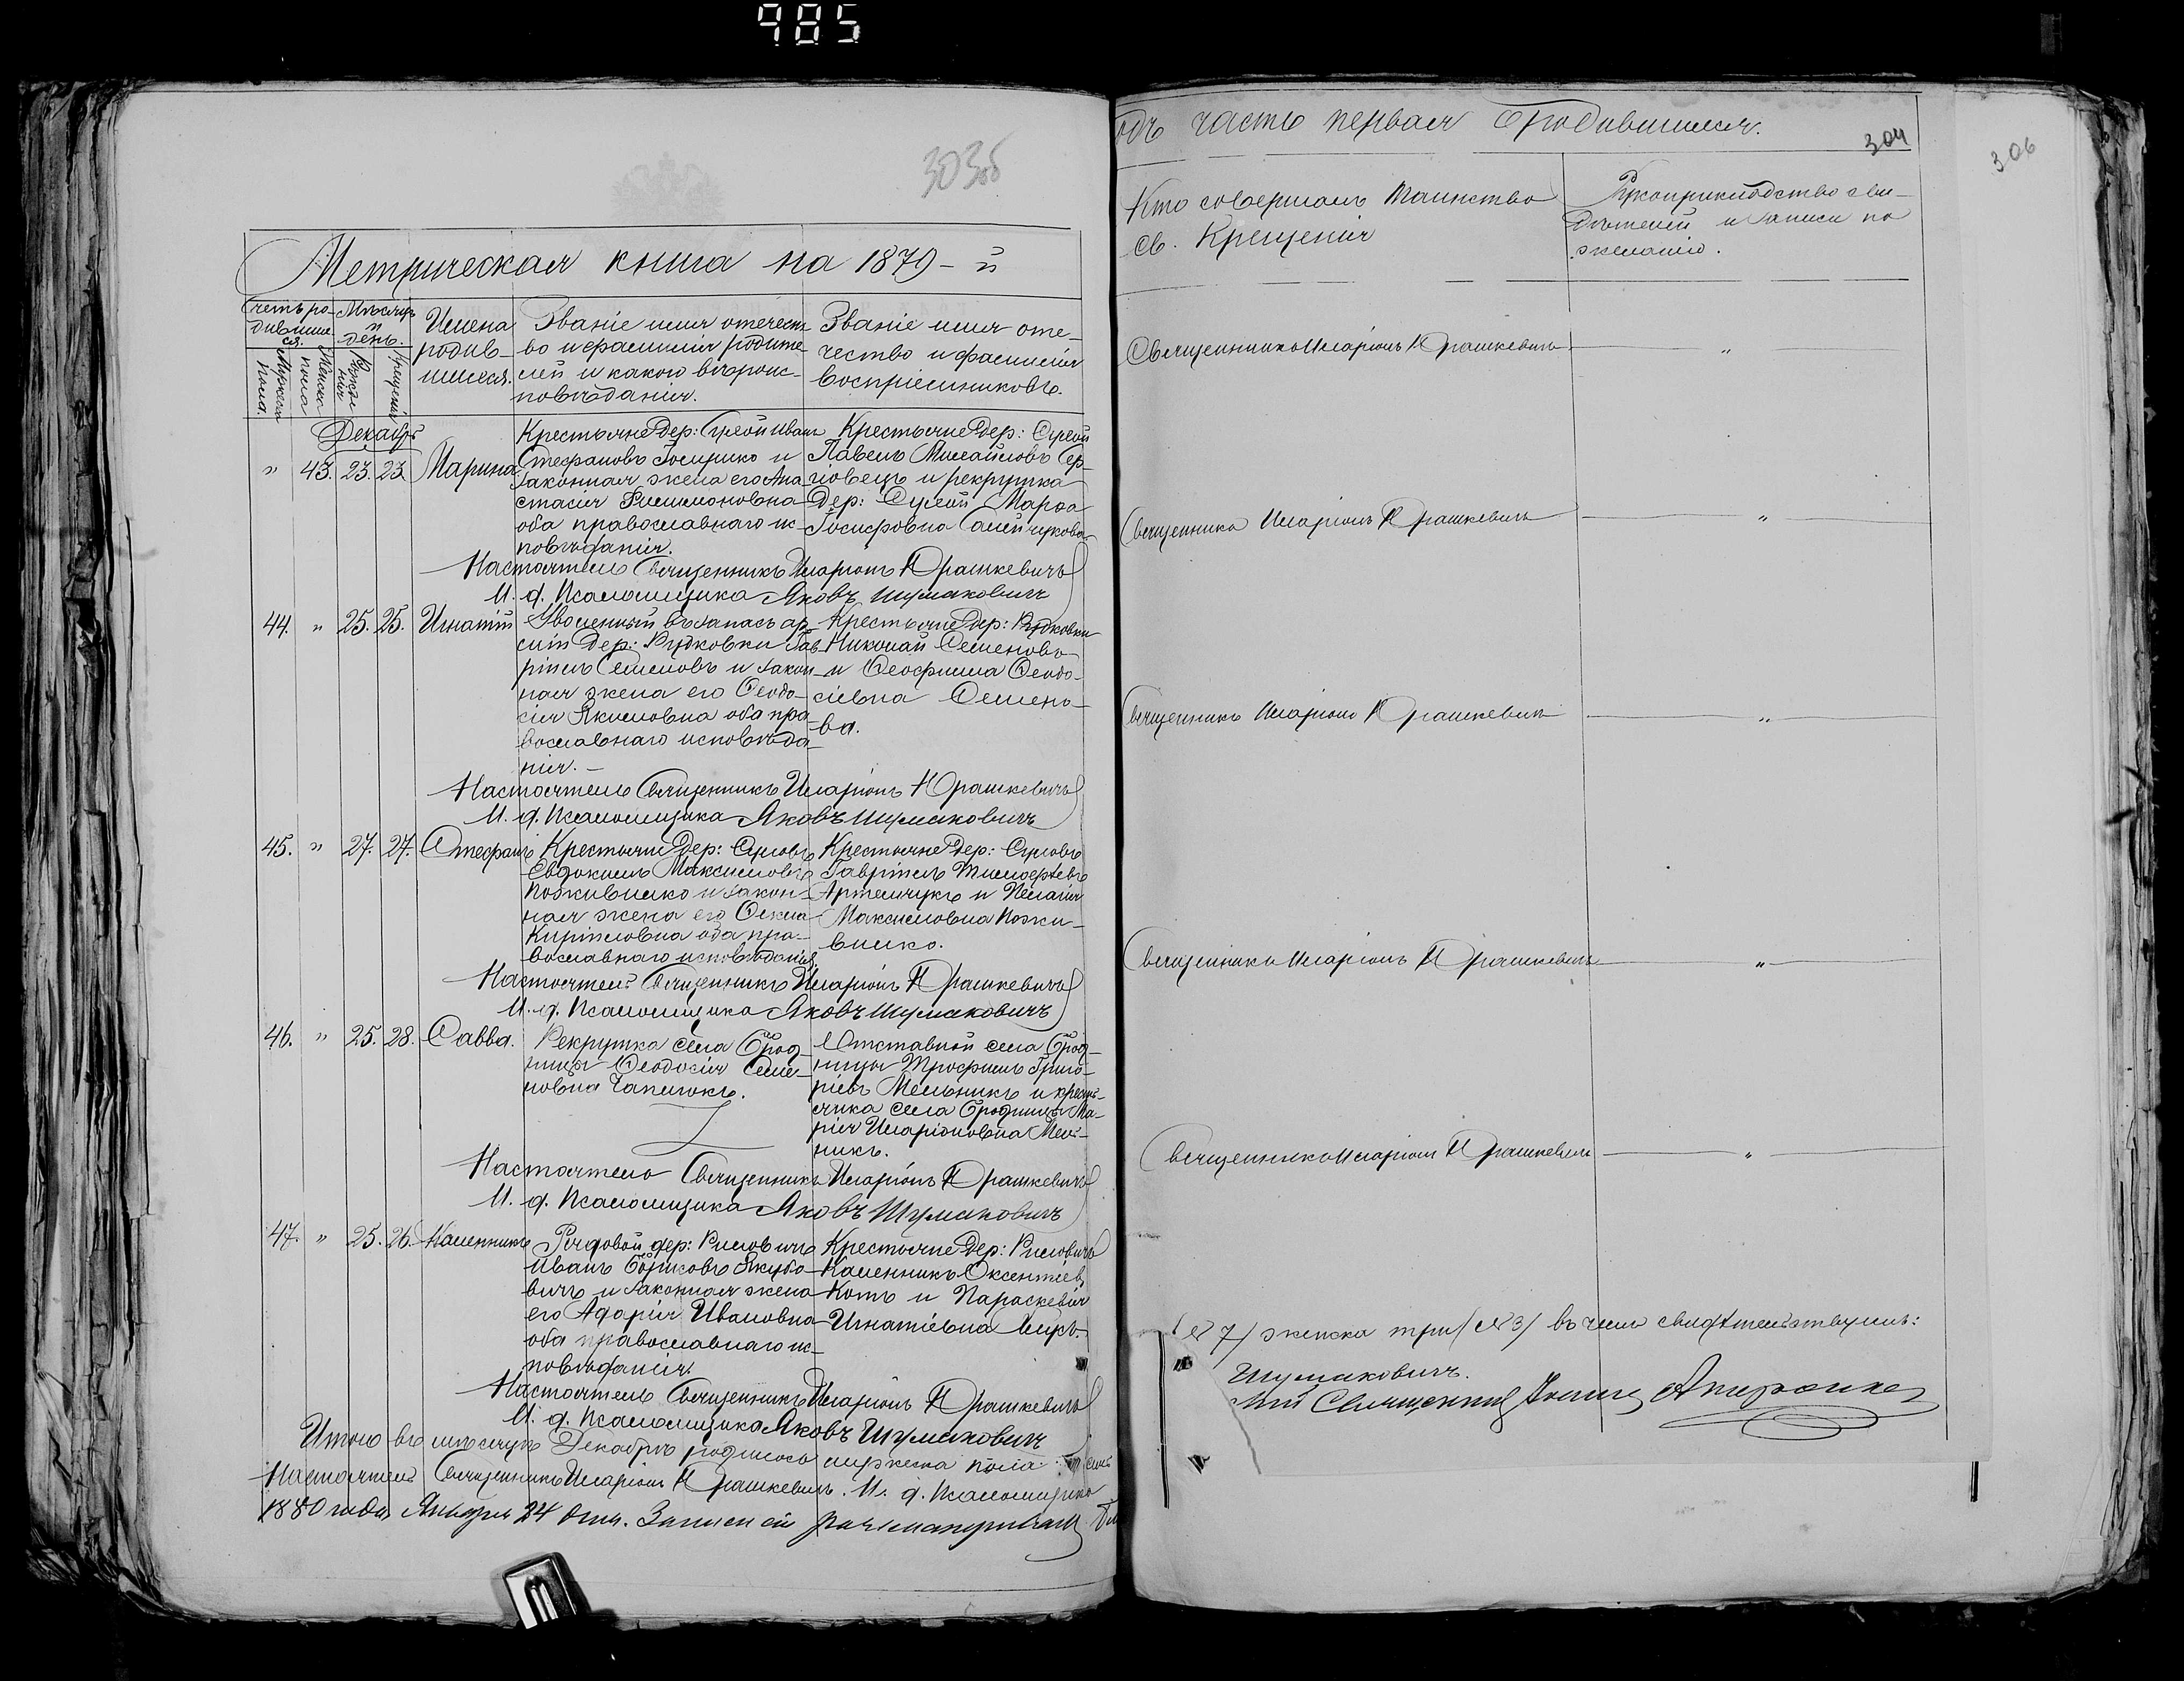 985
303об
Метрическая книга на 1879-й
Счетъ родившихся.
Мужеска пола.
Женска пола
Мѣсяцъ и день.
Рожденія
Крещенія
Имена родившихся.
Званіе имя отечество и фамилія родителей и какого вѣроисповѣданія.
Званіе имя отечество и фамилія воспріемниковъ.
Декабрь
" 43. 23. 23. Марина
Крестьяне дер: Иванъ
Стефановъ и
законная жена его Ана-
стасія Филимоновна
оба православнаго ис-
повѣданія.
Крестьяне дер:
Павелъ Михайловъ Сер-
и рекрутка
дер: Марѳа
Іосифовна
Настоятель Священникъ Иларіонъ Юрашкевичъ
И. д. Псаломщика Яковъ Шумаковичъ
44. " 25. 25. Игнатій
Уволенный въ запасъ ар-
міи дер: Рудковки Гав-
ріилъ Семеновъ и закон-
ная жена его Ѳеодо-
сія Якимовна оба пра-
вославнаго исповѣда-
нія.
Крестьяне дер: Рудковки
Николай Семеновъ
и Ѳеофима Ѳеодо-
сіевна Семено-
ва.
Настоятель Священникъ Иларіонъ Юрашкевичъ
И. д. Псаломщика Яковъ Шумаковичъ
45. " 27. 27. Стефанъ
Крестьяне дер:
Евдокимъ Максимовъ
Поживилко и закон-
ная жена его
Киріиловна оба пра-
вославнаго исповѣданія.
Крестьяне дер:
Гавріилъ Тимоѳеевъ
Артемчукъ и Пелагія
Максимовна Пожи-
вилко.
Настоятель Священникъ Иларіонъ Юрашкевичъ
И. д. Псаломщика Яковъ Шумаковичъ
46. " 25. 28. Савва.
Рекрутка села Брод-
ницы Ѳеодосія Семе-
новна Чапилюкъ.
Отставной села Брод-
ницы Трофимъ Григо-
ріевъ Мельникъ и кресть-
янка села Бродницы Ма-
рія Иларіоновна Мель-
никъ.
Настоятель Священникъ Иларіонъ Юрашкевичъ
И. д. Псаломщика Яковъ Шумаковичъ
47. " 25. 26. Каленникъ
Рядовой дер: Риловичъ
Иванъ Борисовъ Якубо-
вичъ и законная жена
его Адарія Ивановна
оба православнаго ис-
повѣданія.
Крестьяне дер: Риловичъ
Каленникъ Оксентіевъ
Котъ и Параскевія
Игнатіевна
Настоятель Священникъ Иларіонъ Юрашкевичъ
И. д. Псаломщика Яковъ Шумаковичъ
Итого въ мѣсяцѣ Декабрѣ родилось мужеска пола семь
Настоятель Священникъ Иларіонъ Юрашкевичъ. И. д. Псаломщика
1880 года Января 24 дня. Записи сіи разсматривалъ
одъ часть первая О родившихся.
304
306
Кто совершалъ таинство
св. Крещенія
Рукоприкладство сви-
дѣтелей и записи по
желанію.
Священникъ Иларіонъ Юрашкевичъ "
Священникъ Иларіонъ Юрашкевичъ "
Священникъ Иларіонъ Юрашкевичъ "
Священникъ Иларіонъ Юрашкевичъ "
Священникъ Иларіонъ Юрашкевичъ "
(№ 7) женска три (№ 3) въ чемъ свидѣтельствуемъ:
Шумаковичъ.
Священникъ